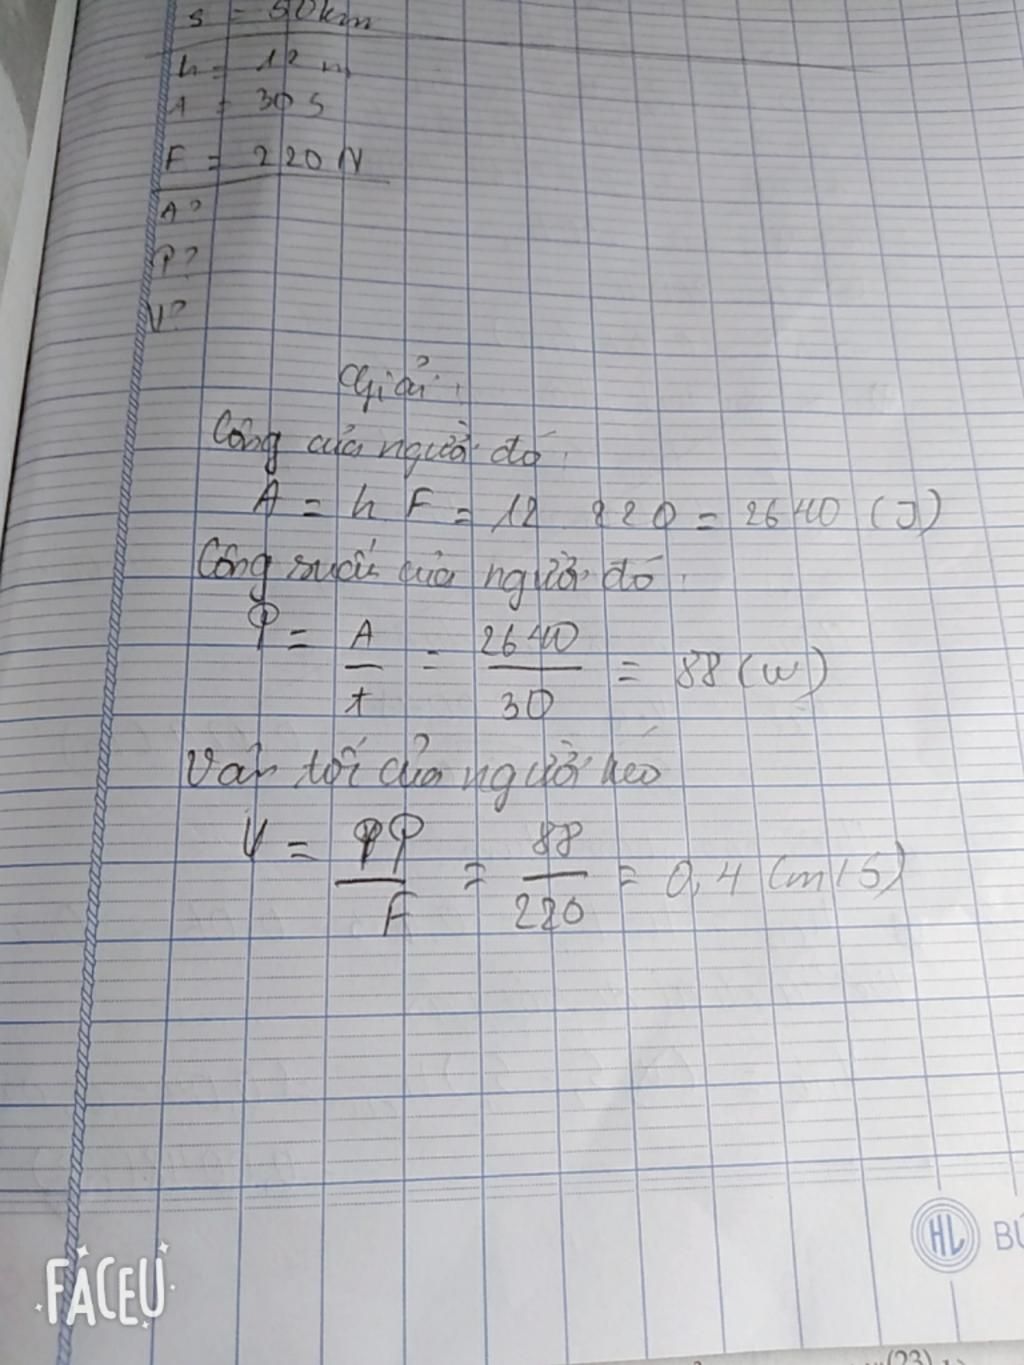 s = 50km
h = 12 m
t = 30 s
F = 220 N
A?
P?
V?
Giải:
Công của người đó.
A = h F = 12 220 = 2640 (J)
Công suất của người đó.
P = A/t = 2640/30 = 88 (w)
Vận tốc của người kéo
V = P/F = 88/220 = 0,4 (m/s)
HL BÚ
FACEU
(23)